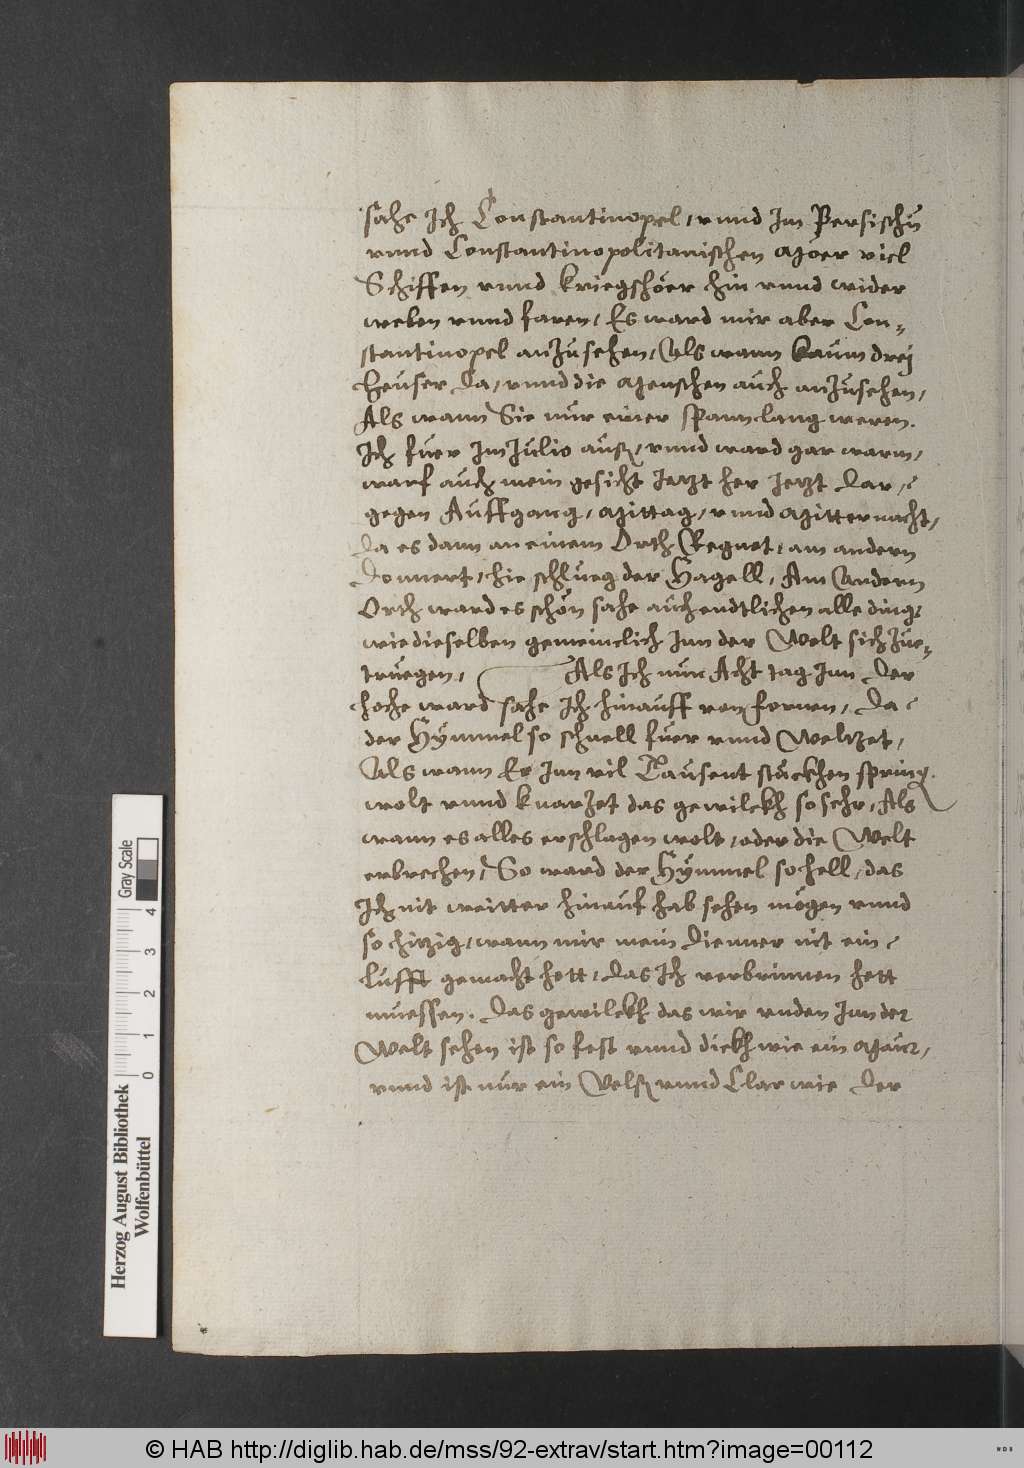 sahe Ich Constantinopel, vnnd Im Persischn
vnnd Constantinopolitanischen Moer viel
Schiffen vnnd kriegshöer hin vnnd wider
weben vnnd faren, Es ward mir aber Con-
stantinopel anzusehen, Als wann kaum drej
heuser da, vnnd die Menschen auch anzusehen,
Als wann Sie nur einer spann lang weren.
Ich fuer Im Julio auß, vnnd ward gar warm,
warf auch mein gesicht Jetzt her Jetzt dar,
gegen Auffgang, Mittag, vnnd Mitternacht,
da es dann an einem Orth Regnet, am andern
Donnert, hie schlueg der Hagell, Am Andern
Orth ward es schön sahe auch endtlichen alle ding
wie dieselben gemeinclich Inn der Welt sich zue-
truegen, Als Ich nun Acht tag Inn der
hoche ward sahe Ich hinauff von fornen, Da
der Hÿmmel so schnell fuer vnnd Welzet,
Als wann Er Inn vil Tausent stückhen spring
wolt vnnd knarzet das gewilckh so sehr, Als
wann es alles erschlagen wolt, oder die Welt
erbrechen, So ward der Hÿmmel so hell, das
Ich nit weitter hinauf hab sehen mögen vnnd
so hitzig, wann mir mein dienner nit ein
lufft gemacht hett, das Ich verbrinnen hett
muessen. Das gewilckh das wir vnden Inn der
Welt sehen ist so fest vnnd dickh wie ein Maur,
vnnd ist nur ein Velß vnnd Clar wie der
Herzog August Bibliothek
Wolfenbüttel
Gray Scale
0 1 2 3 4
© HAB http://diglib.hab.de/mss/92-extrav/start.htm?image=00112
WDB